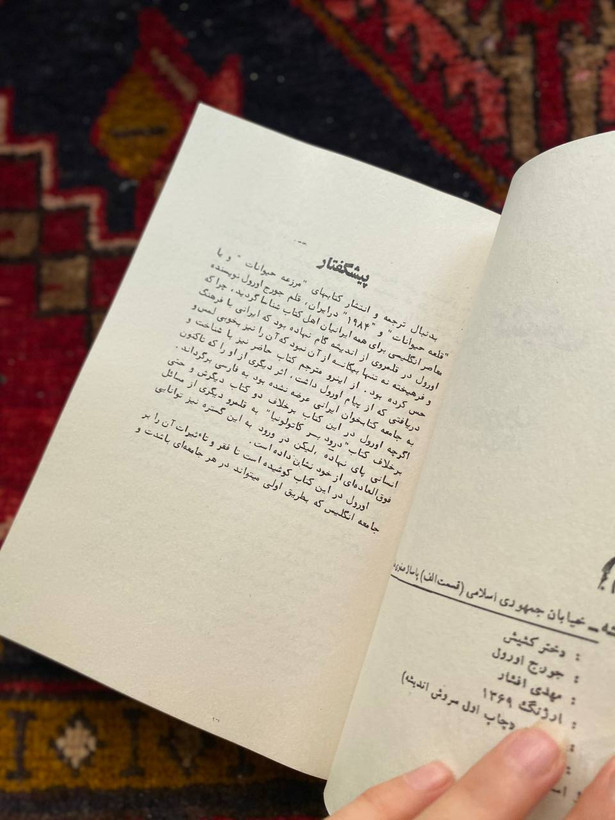 پیشگفتار
بدنبال ترجمه و انتشار کتابهای "مزرعه حیوانات" و یا
"قلعه حیوانات" و "۱۹۸۴" در ایران، قلم جورج اورول نویسنده
معاصر انگلیسی برای همه ایرانیان اهل کتاب شناسا گردید. چرا که
اورول در قلمروی از اندیشه گام نهاده بود که ایرانی با فرهنگ
و فرهیخته نه تنها بیگانه از آن نبود که آن را نیز بخوبی لمس و
حس کرده بود. از اینرو مترجم کتاب حاضر نیز با شناخت و
دریافتی که از پیام اورول داشت، اثر دیگری از او را که تاکنون
به جامعه کتابخوان ایرانی عرضه نشده بود به فارسی برگرداند.
اگرچه اورول در این کتاب برخلاف دو کتاب دیگرش و حتی
برخلاف کتاب "درود بر کاتولونیا" به قلمرو دیگری از مسائل
انسانی پای نهاده، لیکن در ورود به این گستره نیز توانایی
فوق‌العاده‌ای از خود نشان داده است.
اورول در این کتاب کوشیده است تا فقر و تاءثیرات آن را بر
جامعه انگلیس که بطریق اولی میتواند در هر جامعه‌ای باشدت و
خیابان جمهوری اسلامی (قسمت الف) پاساژ
: دختر کشیش
: جورج اورول
: مهدی افشار
: ارژنگ ۱۳۶۹
(چاپ اول سروش اندیشه)